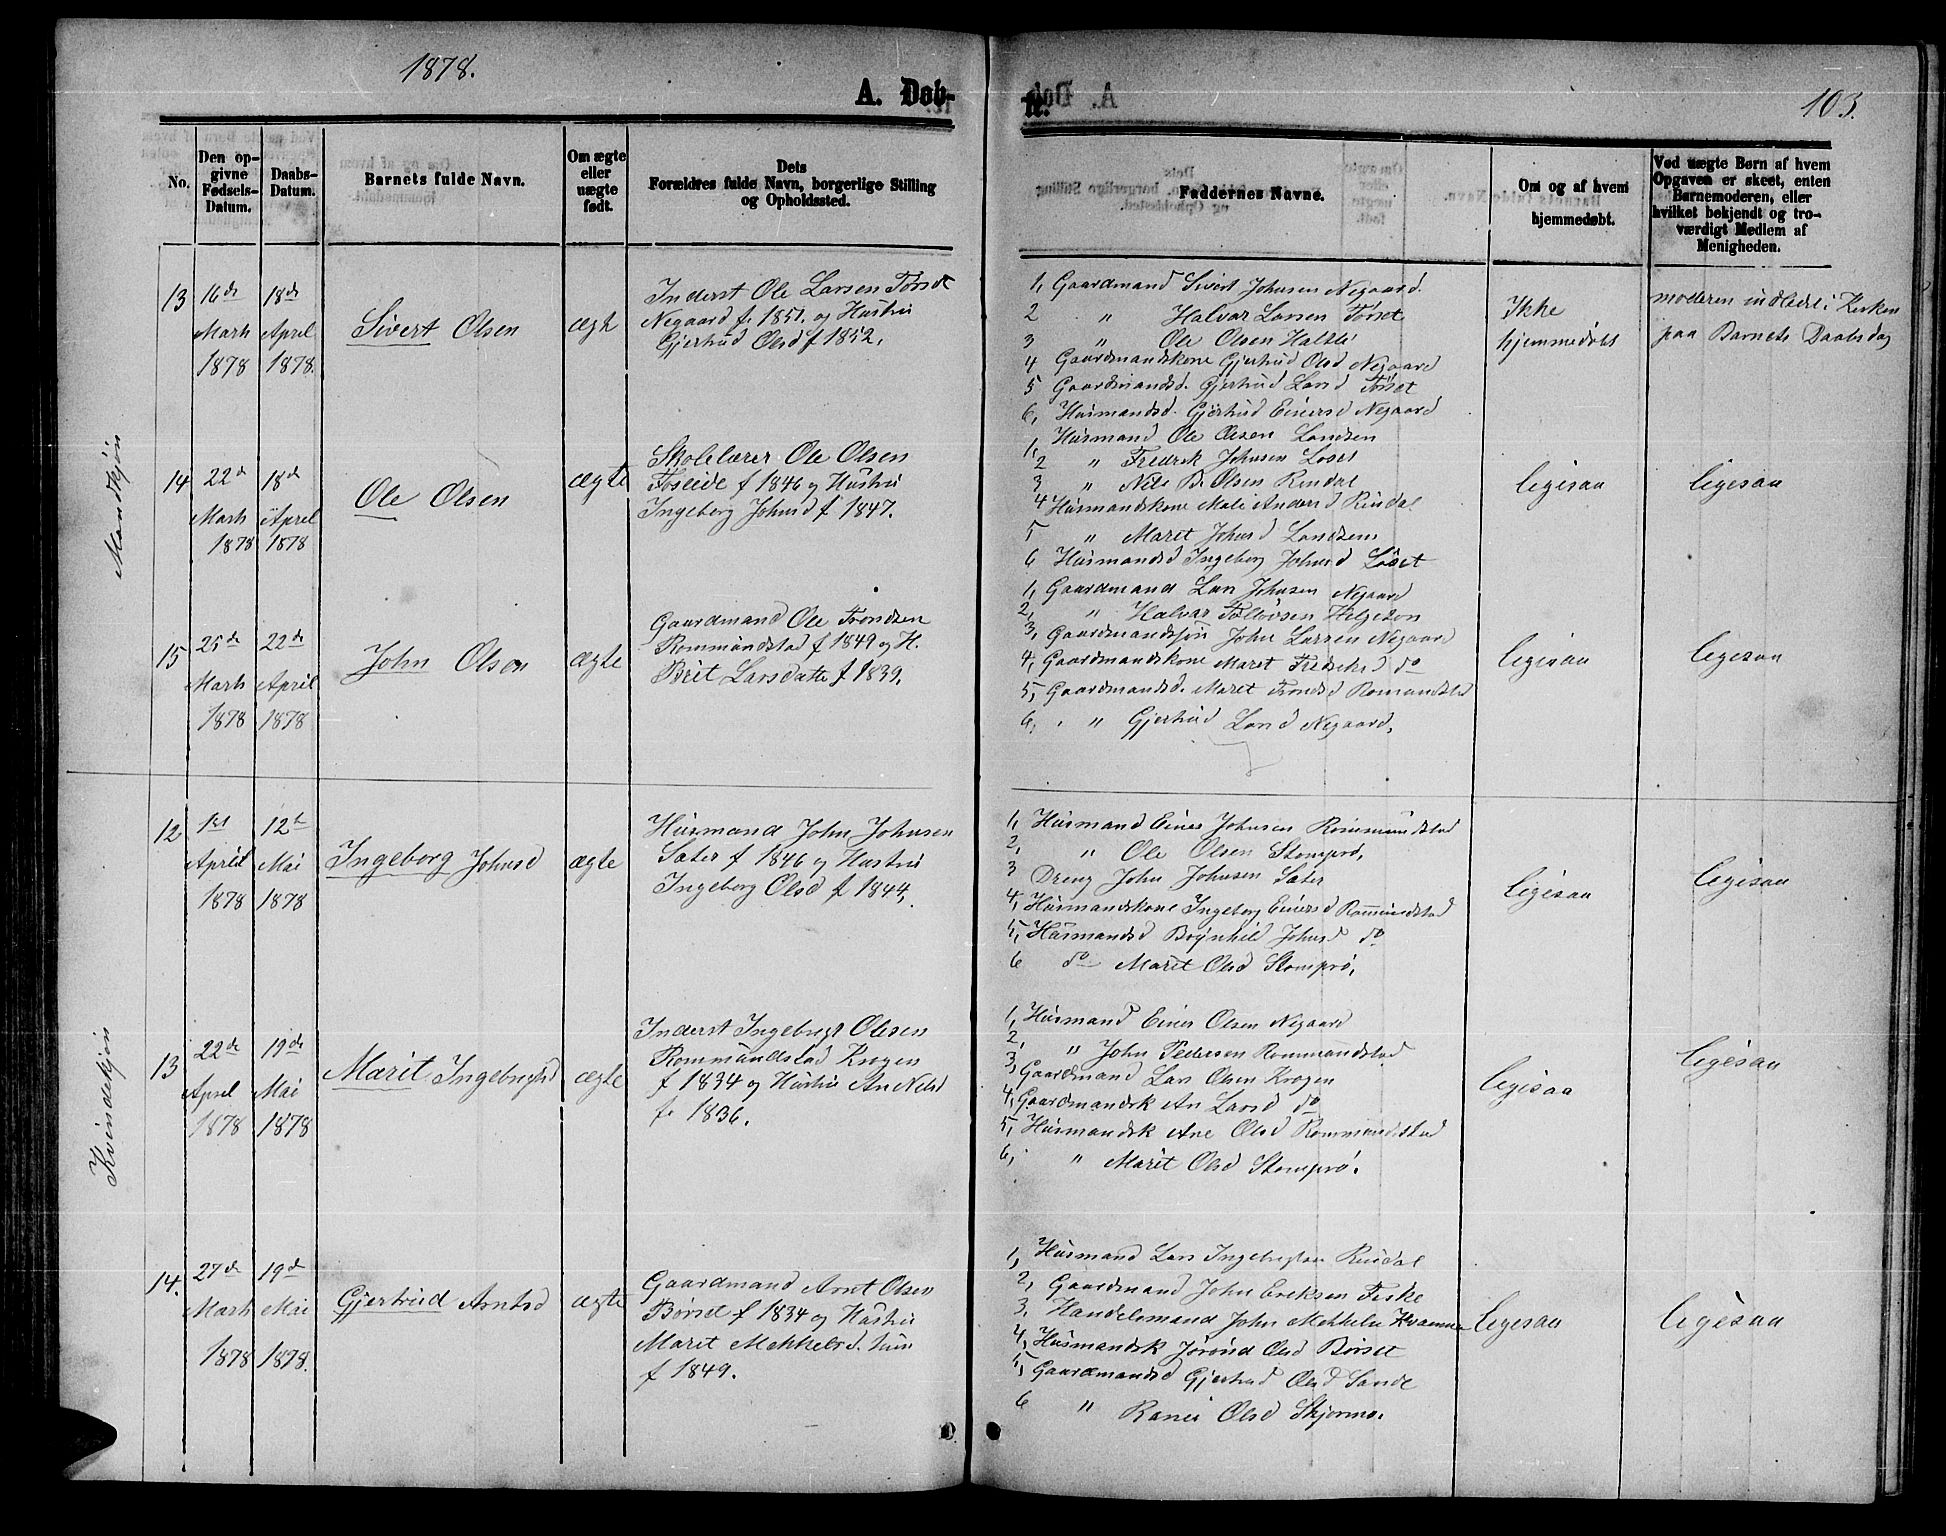 1878.
A. Døb-
te.
103.
No.
Den op-
givne
Fødsels-
Datum.
Daabs-
Datum.
Barnets fulde Navn.
Om ægte
eller
uægte
født.
Dets
Forældres fulde Navn, borgerlige Stilling
og Opholdssted.
Faddernes Navne.
Om og af hvem
hjemmedøbt.
Ved uægte Børn af hvem
Opgaven er skeet, enten
Barnemoderen, eller
hvilket bekjendt og tro-
værdigt Medlem af
Menigheden.
Mandkjøn
13
16de
Marts
1878
18de
April
1878.
Sivert Olsen
ægte
Inderst Ole Larsen Førset
Negaard f. 1851. og Hustru
Gjertrud Olsd f 1852.
1, Gaardmand Sivert Johnsen Negaard.
2 " Halvar Larsen Førset
3 " Ole Olsen
4 Gaardmandskone Gjertrud Olsd Negaard
5 Gaardmandsd. Gjertrud Larsd Førset
6, Husmandsd. Gjertrud Einersd Negaard
Ikke
hjemmedøbt
moderen indledt i Kirken
paa Barnets Daabsdag
14
22de
Marts
1878
18de
April
1878
Ole Olsen
ægte
Skolelærer Ole Olsen
Foseide f 1846 og Hustru
Ingeborg Johnsd f 1847.
1, Husmand Ole Olsen Landsem
2 " Fredrik Johnsen Løset
3 " Nils B. Olsen Rindal
4 Husmandskone Mali Andersd Rindal
5 " Maret Johnsd Landsem
6 Husmandsd Ingeborg Johnsd Løset
ligesaa
ligesaa
15
25de
Marts
1878
22de
April
1878
John Olsen
ægte
Gaardmand Ole Trondsen
Rommundstad f 1849 og H.
Brit Larsdatter f 1839.
1, Gaardmand Lars Johnsen Negaard
2, " Halvar Helgeton
3, Gaardmandssøn John Larsen Negaard
4, Gaardmandskone Maret Fredriksd do
5, Gaardmandsd. Maret Trondsd Romundstad
6, " Gjertrud Larsd Negaard.
ligesaa
ligesaa
Kvindekjøn
12
1ste
April
1878
12te
Mai
1878
Ingeborg Johnsd
ægte
Husmand John Johnsen
Sæter f 1846 og Hustru
Ingeborg Olsd f 1844.
1, Husmand Einer Johnsen Rommundstad
2, " Ole Olsen Stomprø,
3 Dreng John Johnsen Sæter
4, Husmandskone Ingeborg Einersd Rommundstad
5, Husmandsd Brynhild Johnsd do
6 do Marit Olsd Stomprø,
ligesaa
ligesaa
13
22de
April
1878
19de
Mai
1878
Marit Ingebrigtsd
ægte
Inderst Ingebrigt Olsen
Rommundstad Krogen
f 1834 og Hustru An Nilsd
f. 1836.
1, Husmand Einer Olsen Negaard
2, " John Pedersen Rommundstad
3, Gaardmand Lars Olsen Krogen
4, Gaardmandsk An Larsd do
5, Husmandsk Ane Olsd Rommundstad
6, " Marit Olsd Stomprø.
ligesaa
ligesaa
14.
27de
Marts
1878
19de
Mai
1878.
Gjertrud Arntsd
ægte
Gaardmand Arnt Olsen
Børset f 1834 og Hustru
Maret Mekkelsd.
f 1849.
1, Husmand Lars Ingebrigtsen Rindal
2, Gaardmand John Eriksen Fiske
3, Handelsmand John Mekkelsen Kvamme
4, Husmandsk Jørønd Olsd Børset
5 Gaardmandsd Gjertrud Olsd Sande
6 " Ranei Olsd Skjermo.
ligesaa
ligesaa